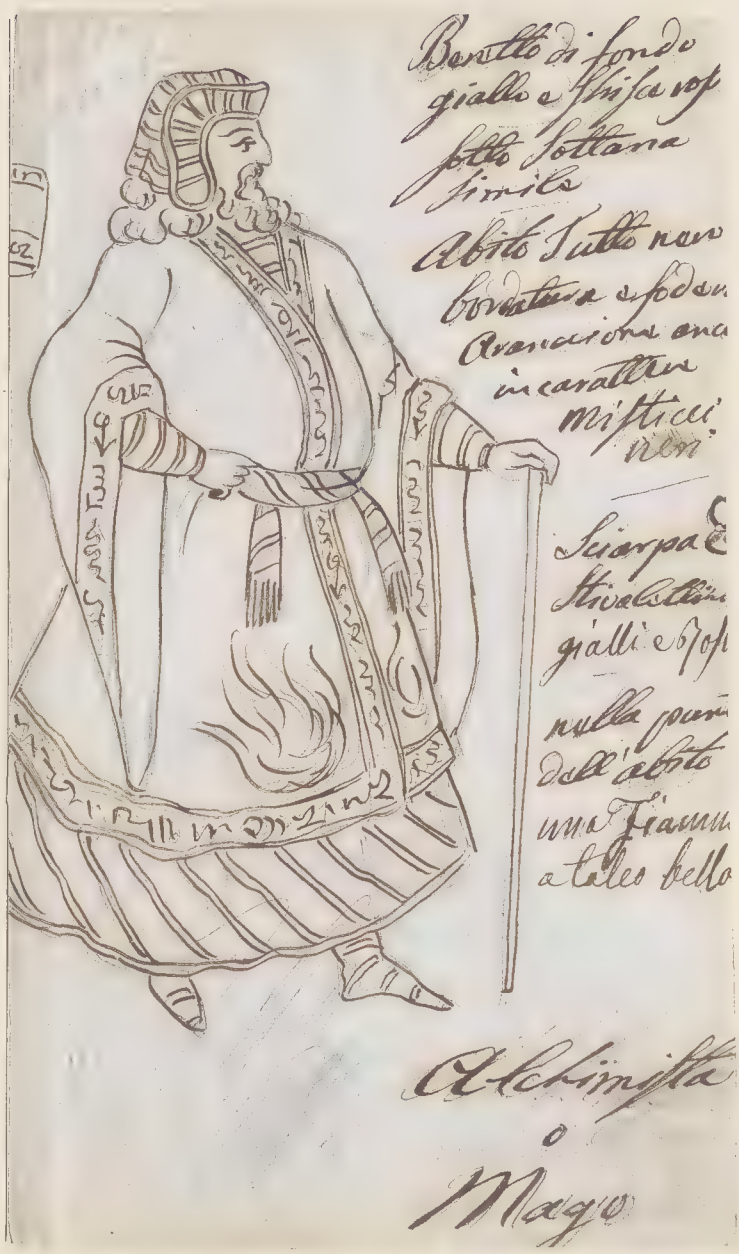 Beretto di fondo
giallo e ſhiſce roſ
ſotto Sottana
ſimile
Abito Tutto nero
bordatura e foder
Arancione anc
in caratteri
Miſtici
neri
Sciarpa E
Stivalettin
gialli e roſſ
nella par
dell'abito
una Fiamm
bello
Alchimiſta
o
Mago